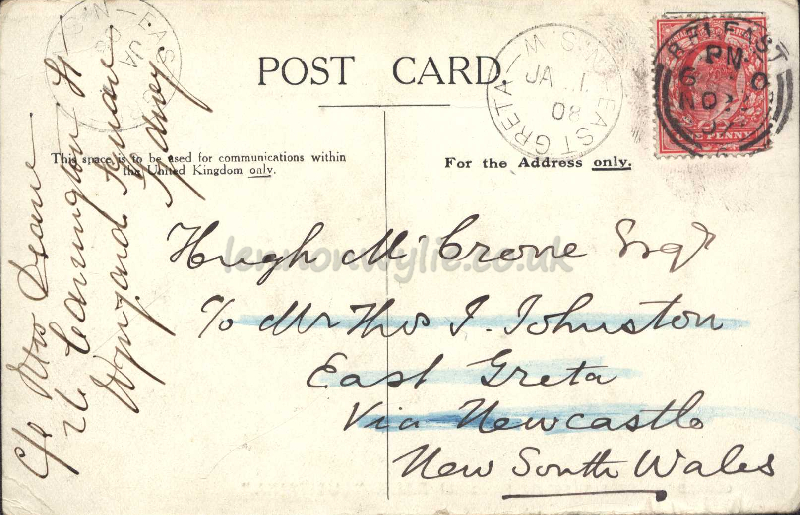 POST CARD.
This space is to be used for communications within
the United Kingdom only.
For the Address only.
EAST GRETA N.S.W
JA 1
08
BELFAST
PM
NO
PENNY
Hugh McCrone Esqr
c/o Mr Thos J. Johnston
East Greta
Via Newcastle
New South Wales
C/o Mrs Deane
26 Carrington St
Wynyard
Sydney
EAS
JA
08
lennonwylie.co.uk